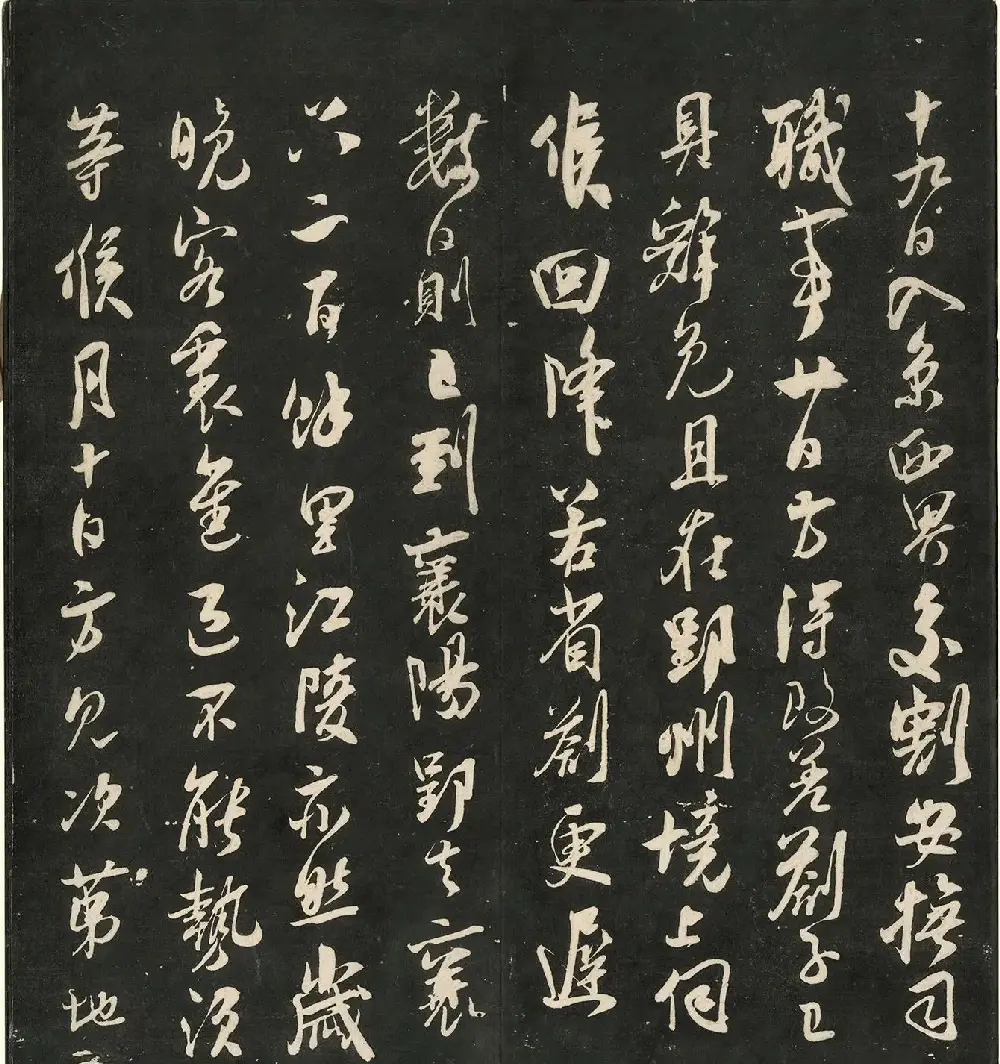 十九日入京西界交割安撫司
職事廿日方得改差劄子已
具辭免且在郢州境上伺
候回降若省劄更遲
數日則已到襄陽郢去襄
只二百餘里江陵亦然歲
晚客裏進退不能勢須
等候月十日方見次第地